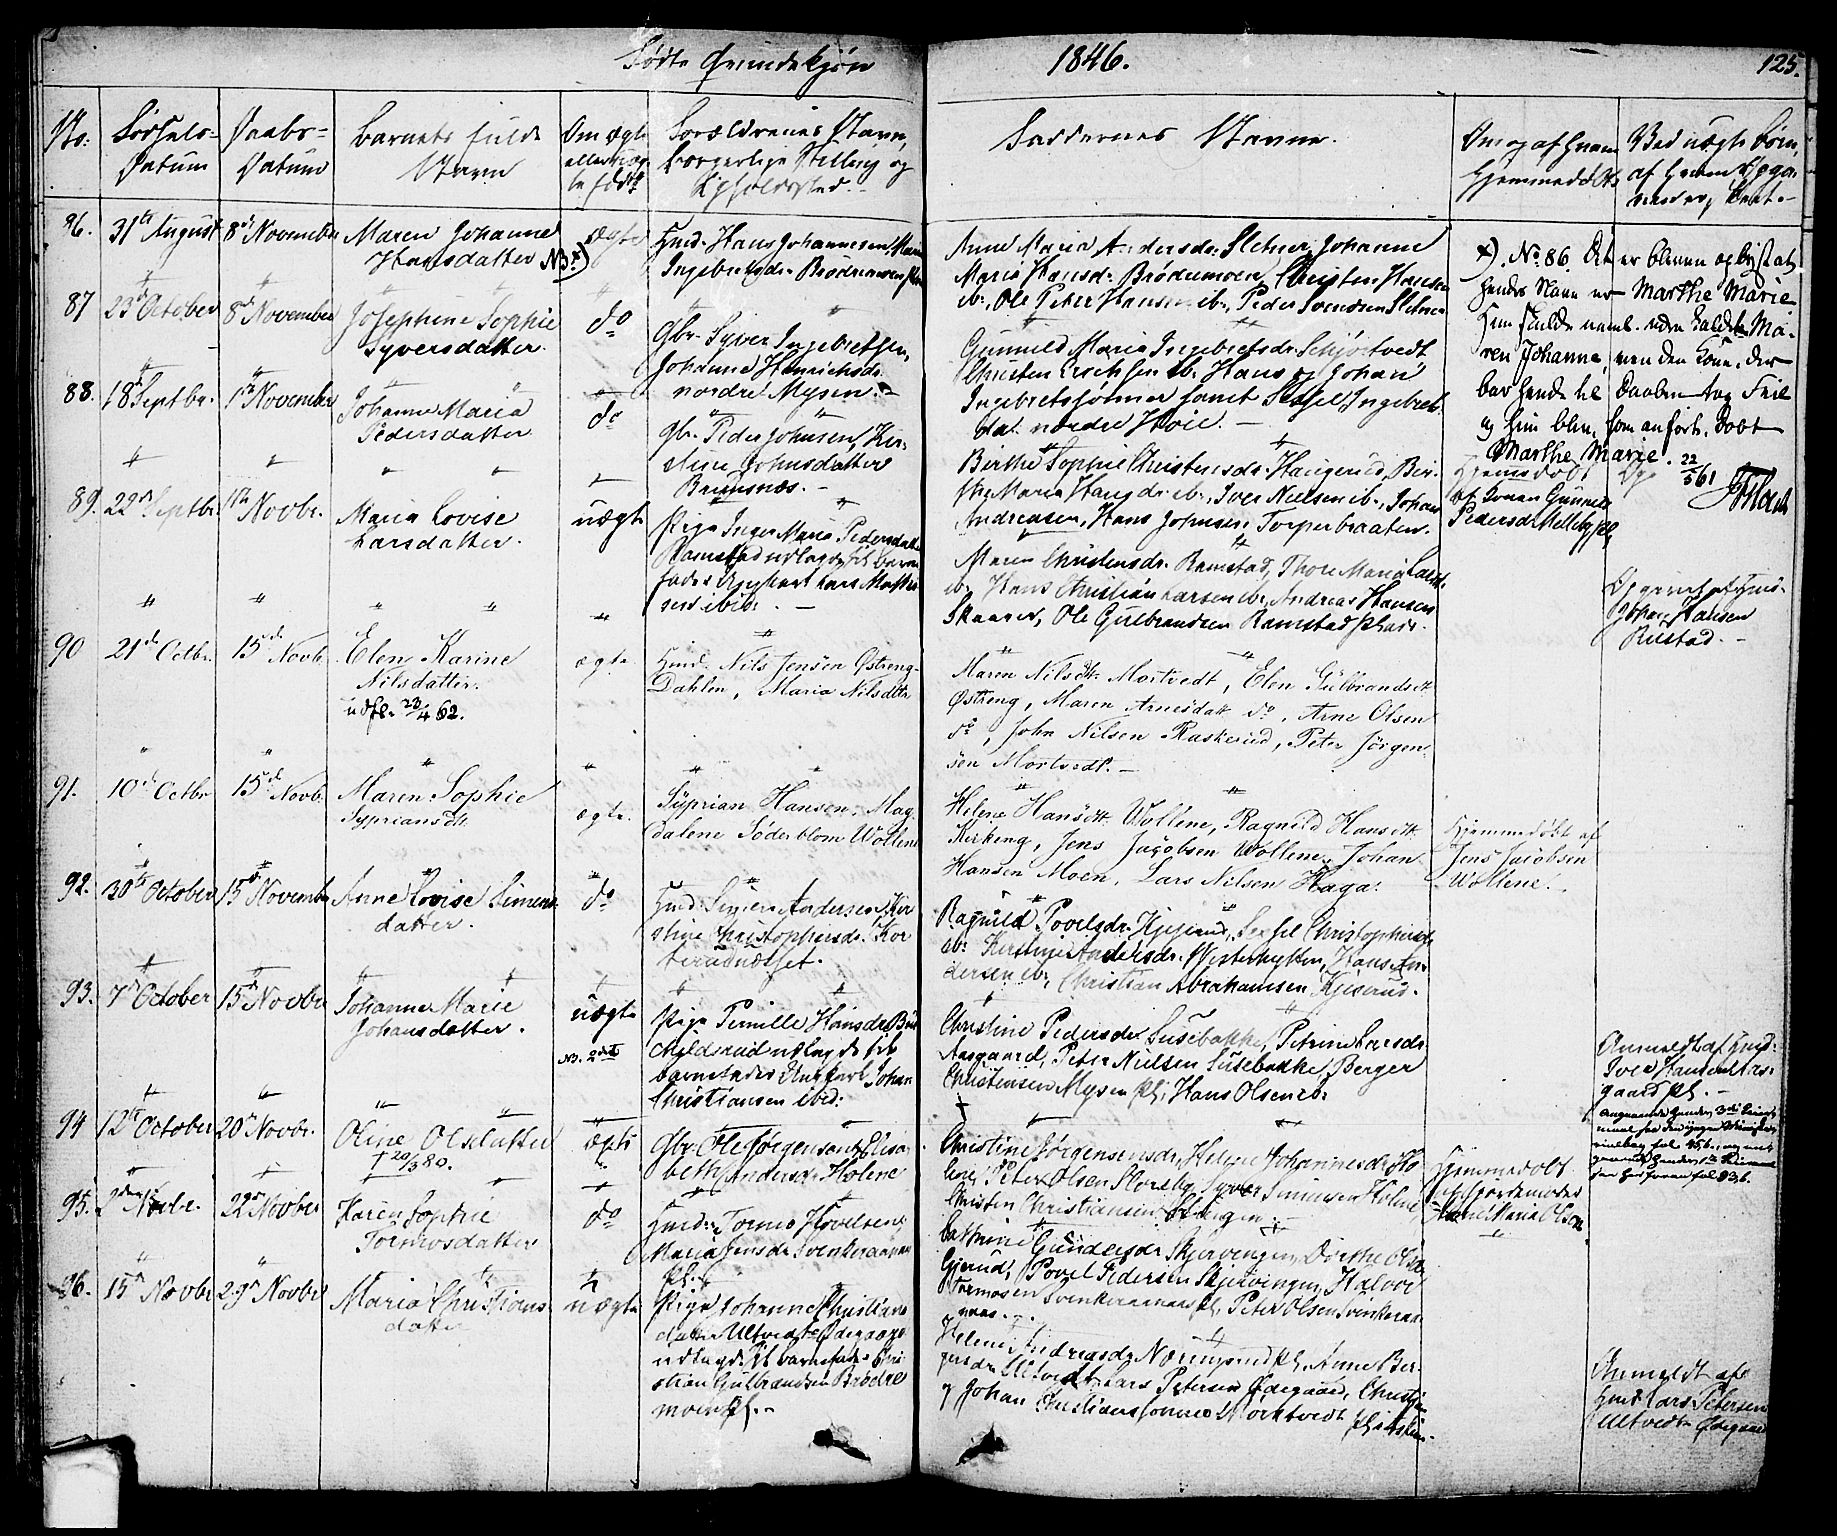 Fødte Qvindekjøn 1846. 125.
No. Fødsels-Datum Daabs-Datum Barnets fulde Navn Om ægte eller uægte født Forældrenes Navn, borgerlige Stilling og Opholdssted. Faddernes Navne. Om og af hvem Hjemmedøbt Ved uægte Børn, af hvem Opgivende
86. 31te August 8de November Maren Johanne
Hansdatter NB x) ægte
Gmd. Hans Johannesen, Maren
Ingebretsdr. Brødremoen
Anne Maria Andersdr. Sletner, Johanne
Maria Hansdr. Brødremoen, Christen Hansen
ib., Ole Peter Hansen ib., Peder Svendsen Sletner
x). No. 86. Det er bleven oplyst at
hendes Navn er Marthe Marie
Hun skulde været kaldt Ma-
ren Johanne, men den Kone, der
bar hende til Daaben tog Feil
og hun blev, som anført, døbt
Marthe Marie. 22/5 61
87 23de October 8de November Josephine Sophie
Syversdatter. do
Gbr. Syver Ingebretsen,
Johanne Henrichsdr.
nordre Mysen.
Gunnild Maria Ingebretsdr. Schjøltvedt
Christen Erichsen ib. Hans og Johan
Ingebretssønner samt Ingebrets-
dat. nordre Høie.
88. 18de Septbr. 1ste November Johanne Maria
Pedersdatter do
Gbr. Peder Johnsen, Kir-
stine Johnsdatter
Brinsnæs.
Berthe Sophie Christensdr. Haugerud, Bir-
the Maria Hansdr. ib., Iver Nielsen ib., Johan
Andreasen, Hans Johnsen, Torperbraaten.
Hjemmedøbt
af Konen Gunnild
Pedersdr.
89. 22de Septbr. 1ste Novbr. Maria Lovise
Larsdatter. uægte
Pige Inger Marie Pedersdatter
Ramstad udlagde til barne-
fader Ungkarl Lars Mathi-
sen ibid.
Maren Christensdr. Ramstad, Thore Maria Larsdr.
ib., Hans Christian Larsen ib., Andreas Hansen
Skaaren, Ole Gulbrandsen Ramstad
Opgivet af Gmd.
Johan Hansen
Rustad.
90 21de Octbr. 15de Novb. Elen Karine
Nilsdatter.
udfl. 23/4 62. ægte
Gmd. Nils Jensen Østreng-
Dahlen, Maria Nilsdttr
Maren Nilsdtt. Mortvedt, Elen Gülbrandsdtt
Østreng, Maren Arnesdatt. do, Arne Olsen
do, John Nilsen Raskerud, Peter Jörgen-
sen Mortvedt.
91. 10de Octbr 15de Novb. Maren Sophie
Sypriansdt. ægte.
Syprian Hansen, Mag-
dalene Söderblom Wollene
Helene Hansdtt. Wollene, Ragnild Hansdtt.
Kirkeng, Jens Jacobsen Wollene, Johan
Hansen Moen, Lars Nilsen Haga.
Hjemmedöbt af
Jens Jacobsen
Wollene.
92. 30te October 15de November Anne Lovise Simens-
datter. do
Gmd. Simen Andersen, Kir-
stine Christophersdr. Kor-
Ragnild Povelsdr. Kjiserud, Christophersdr.
ib. Kirstine Andersdr. Westerhytten, Hans An-
dersen ib., Christian Abrahamsen Kjiserud.
93. 7de October 15de Novbr Johanne Marie
Johansdatter. uægte
NB. 2det
Pige Pernille Hansdr.
udlagde til
barnefader Ungkarl Johan
Christiansen ibid:
Christine Pedersdr Susebakke, Petrine Larsdr.
Aasgaard, Peter Nielsen Susebakke, Berger
Christensen Mysen pl., Hans Olsen ib.
Anmeldt af Gmd.
Iver Hansen Aas-
gaard pl.
94 12te October 20de Novbr. Oline Olsdatter
† 20/3 80. ægte
Gbr. Ole Jørgensen, Elisa-
beth Andersdr. Holene
Christine Jørgensensdr., Helene Johannesdr. Ho-
lene, Peter Olsen Sloreby, Syver Simensen Holene,
Christen Christiansen
Hjemmedøbt
af Jordemoder
Anne Maria Olsen
95. 2den Novbr. 22de Novber Karen Sophie
Tormosdatter do
Gmd. Tormo Hovelsen,
Maria Jensdr. Svenkeraanæs
pl.
Cathrine Gundersdr Skjervingen, Dorthe Olsdr
Gjerud, Povel Pedersen Skjervingen, Halvor
Tormosen Svenkeraanæs pl., Peter Olsen Svinkeraa-
næs.
96. 15de Novbr 29de Novbr Maria Christians-
datter uægte
Pige Johanne Christians-
datter Ultvedt Ødegaard
udlagde til barnefader Chri-
stian Gulbrandsen Brødre-
moen pl.
Helene Andreasdr. Næringsrud pl., Anne Ber-
gersdr. Slitvedt, Lars Petersen Ødegaard, Christian
og Johan Christianssønner Morktvedt
Anmeldt af
Gmd. Lars Petersen
Ultvedt Ødegaard